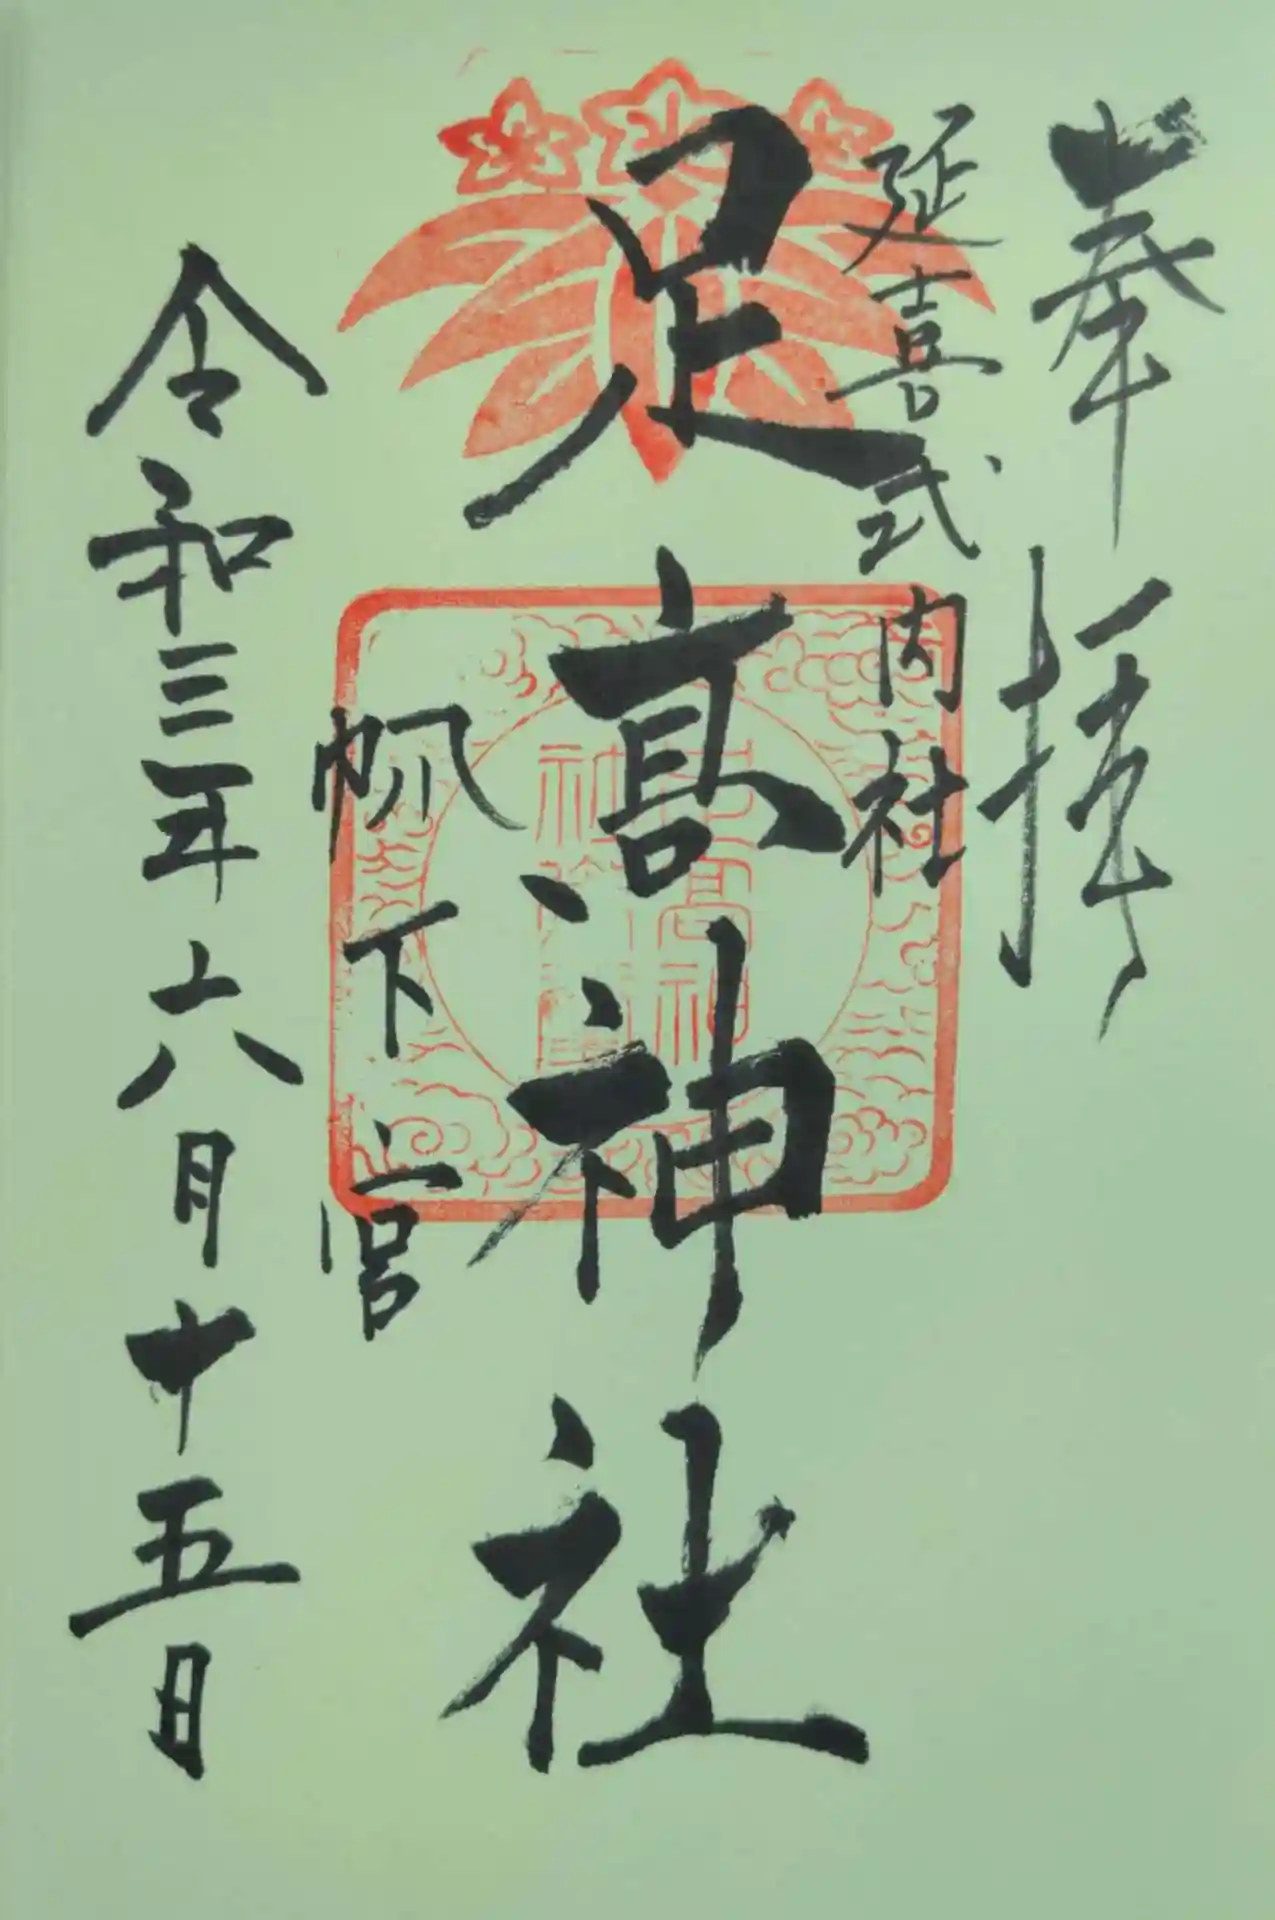 奉拝
延喜式内社
足髙神社
帆下宮
令和三年六月十五日